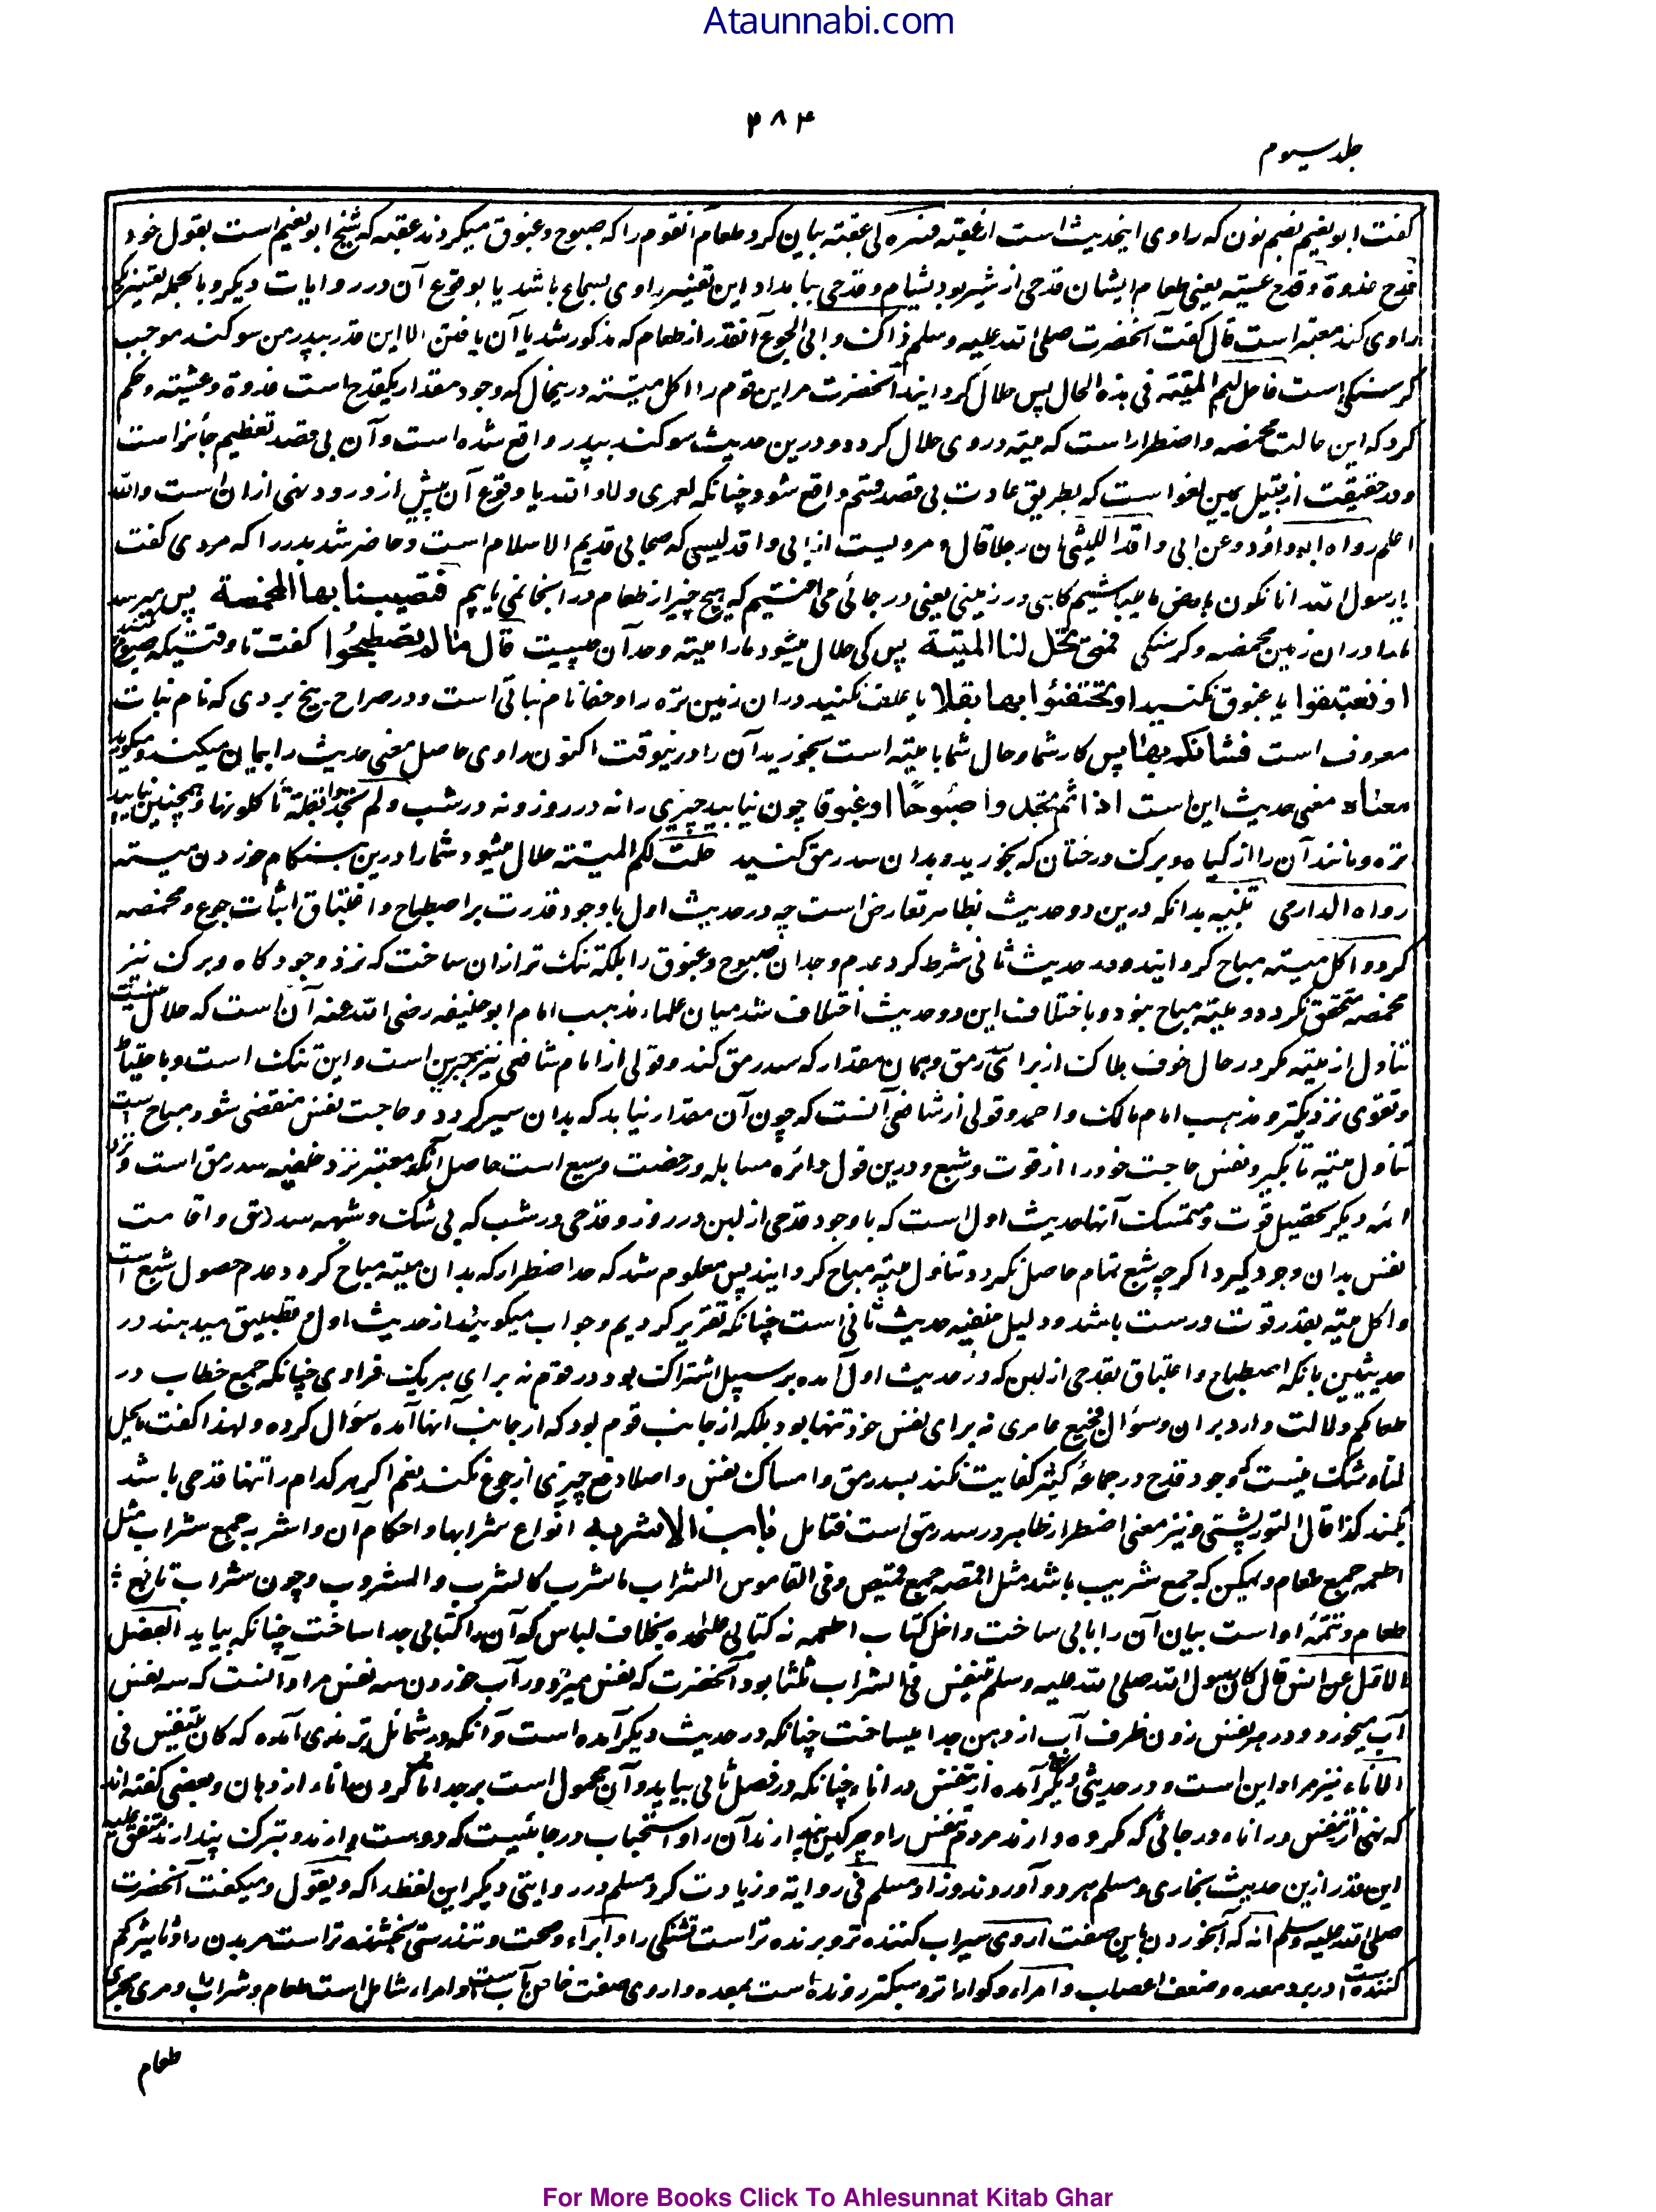 Ataunnabi.com
۳۸۴
جلد سیوم
گفت ابو نعیم بضم نون که راوی اینحدیث است از عقبه فسره لی عقبة بیان کرد طعام آنقوم را که صبوح و غبوق میکردند عقبه که شیخ ابو نعیم است بقول خود
قدح غدوة و قدح عشیة یعنی طعام ایشان قدحی از شیر بود بشام و قدحی ببامداد این تفسیر راوی بسماع باشد یا بوقوع آن در روایات دیگر و بالجمله تفسیر که
راوی کند معتبر است قال گفت آنحضرت صلی الله علیه وسلم ذاک و ابی الجوع آنقدر از طعام که مذکور شد یا آن یافتن الا این قدر بپدر من سوکند موجب
کرسنگی است فاحل لهم المیتة فی هذه الحال پس حلال کردانید آنحضرت مر این قوم را اکل میته درینحال که وجود مقدار یکقدح است غدوة و عشیته و حکم
کرد که این حالت مخمصه و اضطرار است که میته در وی حلال کردد و درین حدیث سوکند بپدر واقع شده است و آن بی قصد تعظیم جائز است
و در حقیقت از قبیل یمین لغو است که بطریق عادت بی قصد قسم واقع شود چنانکه لعمری و لا والله یا وقوع آن پیش از ورود نهی ازان است والله
اعلم رواه ابو داؤد و عن ابی واقد اللیثی ان رجلا قال و مرویست از ابی واقد لیثی که صحابی قدیم الاسلام است و حاضر شد بدر را که مردی گفت
یا رسول الله انا نکون بارض ما میباشیم کاهی در زمینی یعنی در جائی می افتیم که هیچ چیز از طعام در آنجا نمی یابیم فتصیبنا بها المخمصة پس میرسد
ما را دران زمین مخمصه و کرسنگی فمتی تحل لنا المیتة پس کی حلال میشود ما را میته و حد آن چیست قال ما لم تصطبحوا گفت تا وقتیکه صبوح نکنید
او تغتبقوا یا غبوق نکنید او تحتفئوا بها بقلا یا علف نکنید دران زمین تره را و حفا نام نباتی است و در صراح بیخ بردی که نام نبات
معروف است فشانکم بها پس کار شما و حال شما با میته است بخورید آن را درینوقت اکنون راوی حاصل معنی حدیث را بیان میکند و میکوید
معناه معنی حدیث این است اذا لم تجدوا صبوحا او غبوقا چون نیابید چیزی را نه در روز و نه در شب و لم تجدوا بقلة تأکلونها و همچنین نیابید
تره و مانند آن را از کیاه و برک درختان که بخورید و بدان سد رمق کنید حلت لکم المیتة حلال میشود شما را درین هنکام خوردن میته
رواه الدارمی تنبیه بدانکه درین دو حدیث بظاهر تعارض است چه در حدیث اول با وجود قدرت بر اصطباح و اغتباق اثبات جوع و مخمصه
کرد و اکل میته مباح کردانید و در حدیث ثانی شرط کرد عدم وجدان صبوح و غبوق را بلکه تنک تر ازان ساخت که نزد وجود کاه و برک نیز
مخمصه متحقق نکردد و میته مباح نبود و باختلاف این دو حدیث اختلاف شد میان علماء مذهب امام ابو حنیفه رضی الله عنه آن است که حلال نیست
تناول از میته مکر در حال خوف هلاک از برای سد رمق و همان مقدار که سد رمق کند و قولی از امام شافعی نیز بهمین است و این تنک است و باحتیاط
و تقوی نزدیکتر و مذهب امام مالک و احمد و قولی از شافعی آنست که چون آن مقدار نیابد که بدان سیر کردد و حاجت نفس منقضی شود مباح است
تناول میته تا بگیرد نفس حاجت خود را از قوت و شبع و درین قول دائره مساهله و رخصت وسیع است حاصل آنکه معتبر نزد حنفیه سد رمق است و نزد
ائمه دیگر تحصیل قوت و متمسک آنها حدیث اول است که با وجود قدحی از لبن در روز و قدحی در شب که بی شک و شبهه سد رمق و اقامت
نفس بدان وجود کیرد اکرچه شبع تمام حاصل نکردد تناول میته مباح کردانید پس معلوم شد که حد اضطرار که بدان میته مباح کردد عدم حصول شبع است
و اکل میته بقدر قوت درست باشد و دلیل حنفیه حدیث ثانی است چنانکه تقریر کردیم و جواب میکویند از حدیث اول و تطبیق میدهند در
حدیثین بانکه اصطباح و اغتباق بقدحی از لبن که در حدیث اول آمده بر سبیل اشتراک بود در قوم نه برای هر یک فرادی چنانکه جمع خطاب در
طعامکم دلالت دارد بر ان و سؤال فجیع عامری نه برای نفس خود تنها بود بلکه از جانب قوم بود که از جانب آنها آمده سؤال کرده و لهذا گفت ما یحل
لنا و شک نیست که وجود قدح در جماعه کثیر کفایت نکند بسد رمق و امساک نفس و اصلا دفع چیزی از جوع نکند نعم اکر هر کدام را تنها قدحی باشد
بکند کذا قال التورپشتی و نیز معنی اضطرار ظاهر در سد رمق است فتامل باب الاشربه انواع شرابها و احکام آن و اشربه جمع شراب مثل
اطعمه جمع طعام و میکن که جمع شریب باشد مثل اقمصه جمع قمیص و فی القاموس الشراب ما شرب کالشرب و المشروب و چون شراب تابع
طعام و تتمه او است بیان آن را بابی ساخت داخل کتاب اطعمه نه کتابی علیحده بخلاف لباس که آن را کتابی جدا ساخت چنانکه بیاید الفصل
الاول عن انس قال کان رسول الله صلی الله علیه وسلم یتنفس فی الشراب ثلثا بود آنحضرت که نفس میزد در آب خوردن سه نفس مراد آنست که سه نفس
آب میخورد و در هر نفس زدن ظرف آب از دهن جدا میساخت چنانکه در حدیث دیکر آمده است و آنکه در شمائل ترمذی آمده که کان یتنفس فی
الاناء نیز مراد این است و در حدیثی دیکر آمده نهی از تنفس در اناء چنانکه در فصل ثانی بیاید و آن محمول است بر جدا ناکردن اناء از دهان و بعضی گفته اند
که نهی از تنفس در اناء در جائی که مکروه دارند مردم تنفس را و چرکین پندارند آن را و استحباب در جائیست که دوست دارند و تبرک پندارند متفق علیه
این قدر ازین حدیث بخاری و مسلم هر دو آوردند و زاد مسلم فی روایة و زیادت کرد مسلم در روایتی دیکر این لفظ را که و یقول و میگفت آنحضرت
صلی الله علیه وسلم انه که آبخوردن باین صفت اروی سیراب کننده تر و برنده تر است تشنگی را و ابراء و صحت و تندرستی بخشنده تر است مر بدن را و تاثیر کم
کننده است در برد معده و ضعف اعصاب و امراء و کوارا تر و سبکتر رونده است بمعده و اروی صفت خاص بآب است و امراء شامل است طعام و شراب و مری مجری
طعام
For More Books Click To Ahlesunnat Kitab Ghar